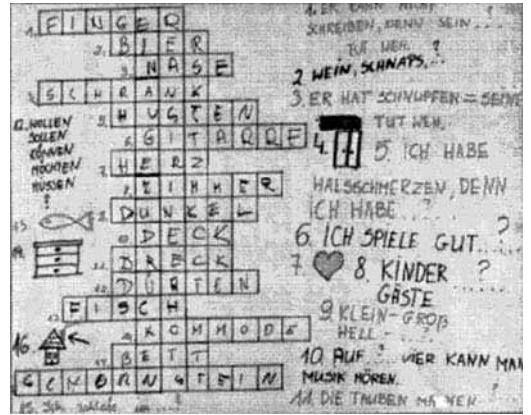 1. FINGER
2. BIER
3. NASE
4. SCHRANK
5. HUSTEN
6. GITARRE
7. HERZ
8. ZIMMER
9. DUNKEL
DECK
11. DRECK
DÜRFEN
13. FISCH
KOMMODE
BETT
SCHORNSTEIN
12. WOLLEN
SOLLEN
KÖNNEN
MÖCHTEN
MÜSSEN
?
16.
1. ER KANN NICHT
SCHREIBEN, DENN SEIN ...
TUT WEH. ?
2 WEIN, SCHNAPS, ...
3. ER HAT SCHNUPFEN = SEINE
TUT WEH.
4.
5. ICH HABE
HALSSCHMERZEN, DENN
ICH HABE ...?...
6. ICH SPIELE GUT ....
7. 8. KINDER ?
GÄSTE
9. KLEIN - GROß
HELL - ...?
10. AUF ..?.. VIER KANN MAN
MUSIK HÖREN.
11. DIE TAUBEN MACHEN ?
15. Ich schlafe im ....